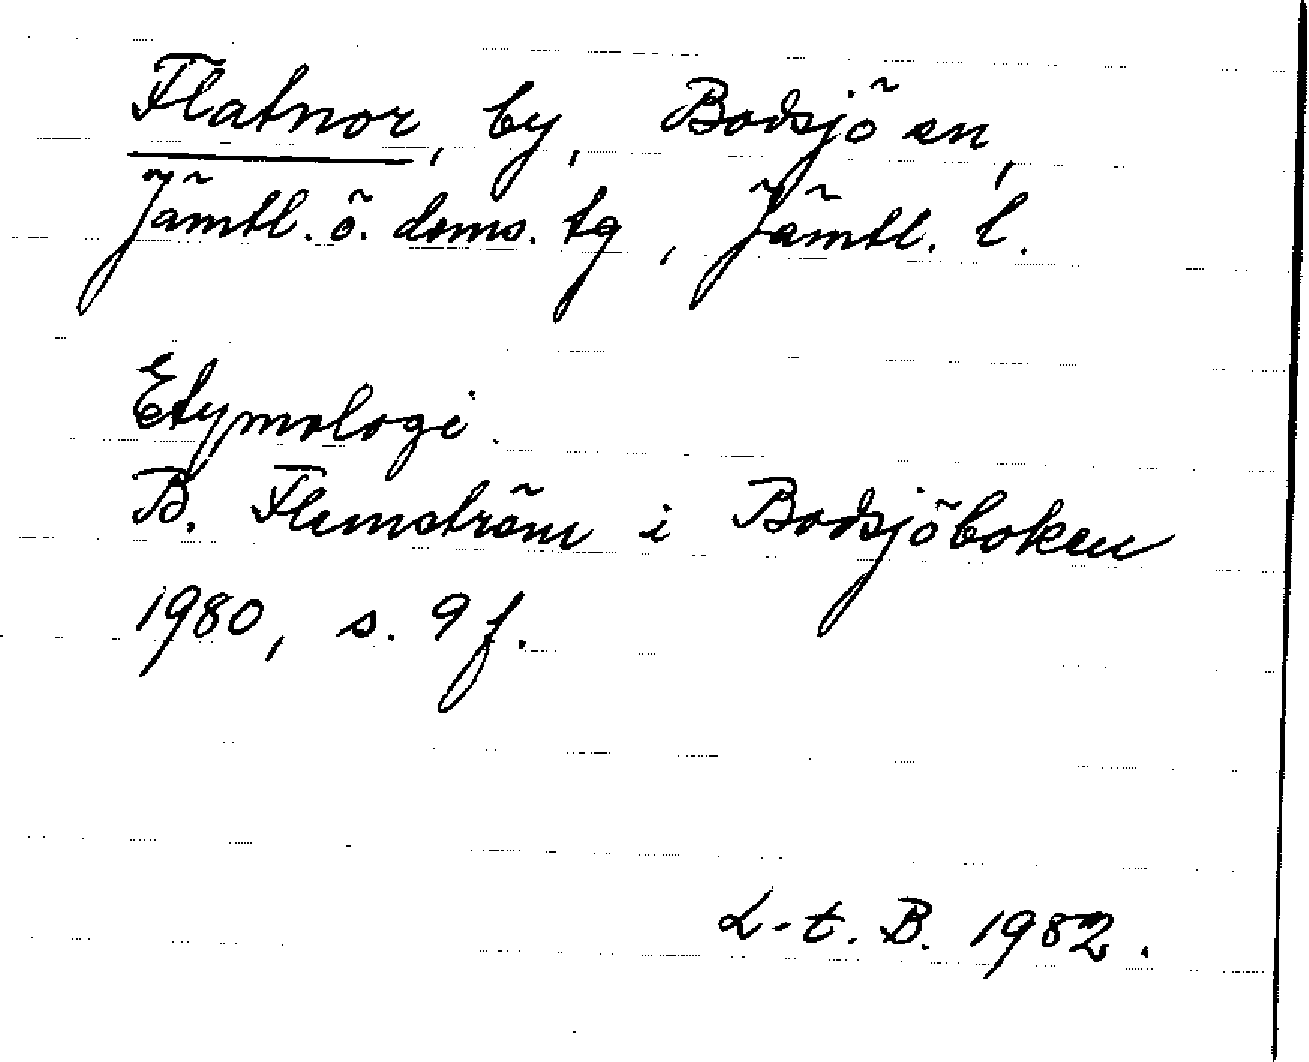 Flatnor, by, Bodsjö sn,
Jämtl. ö. doms. tg, Jämtl. l.
Etymologi.
B. Flemström i Bodsjöboken
1980, s. 9 f.
L-t. B. 1982.